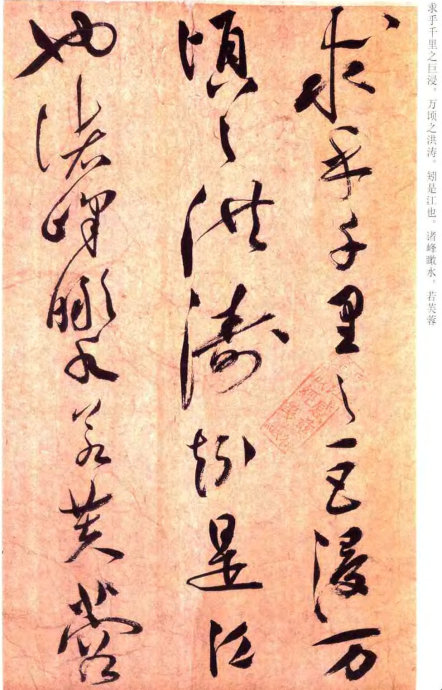 求乎千里之巨浸，万顷之洪涛。矧是江也。渚峰瞰水，若芙蓉
求乎千里之巨浸万
顷之洪涛矧是江
也渚峰瞰水若芙蓉